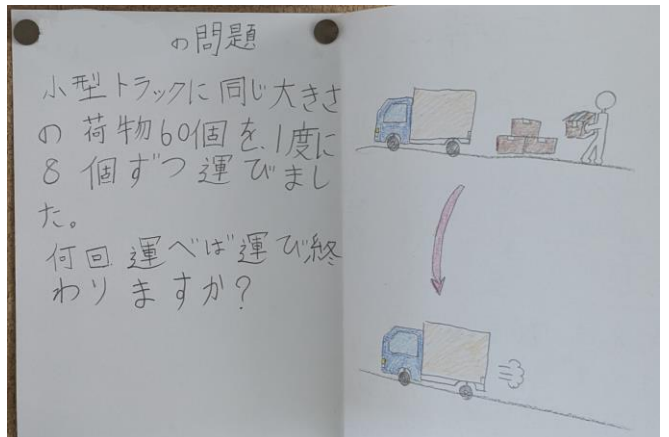 の問題
小型トラックに同じ大きさ
の荷物60個を、1度に
8個ずつ運びまし
た。
何回運べば運び終
わりますか?